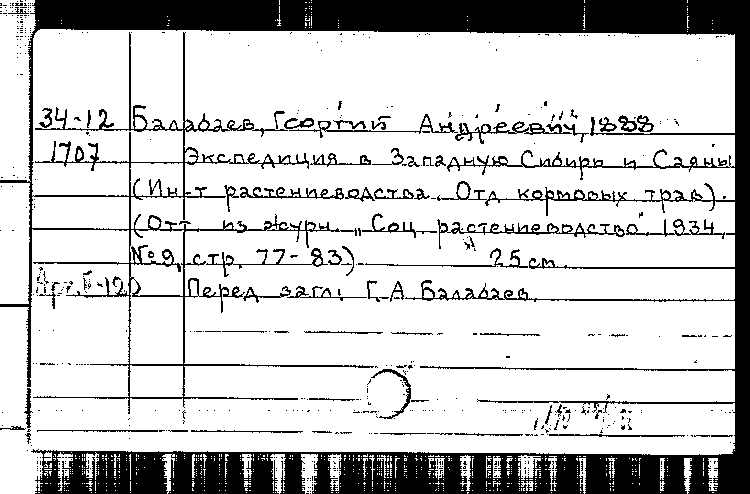 34-12 Балабаев, Георгий Андреевич, 1888
1707 Экспедиция в Западную Сибирь и Саяны
(Ин-т растениеводства. Отд кормовых трав).
(Отт. из журн. „Соц. растениеводство". 1934,
№ 9, стр. 77-83). 25 см.
Перед загл: Г. А. Балабаев.